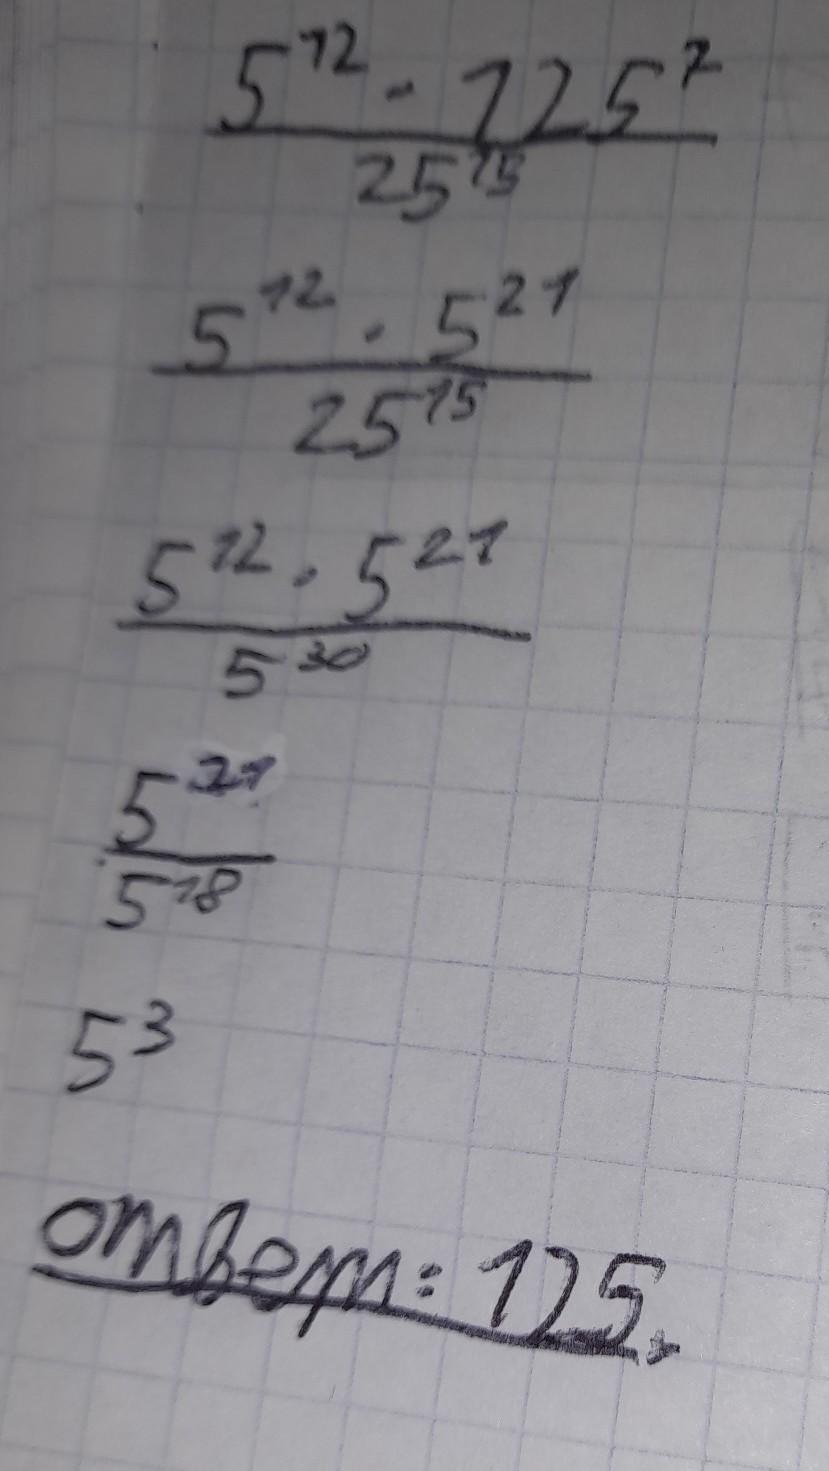 5^12 · 125^7
25^15
5^12 · 5^21
25^15
5^12 · 5^21
5^30
5^21
5^18
5^3
ответ: 125.